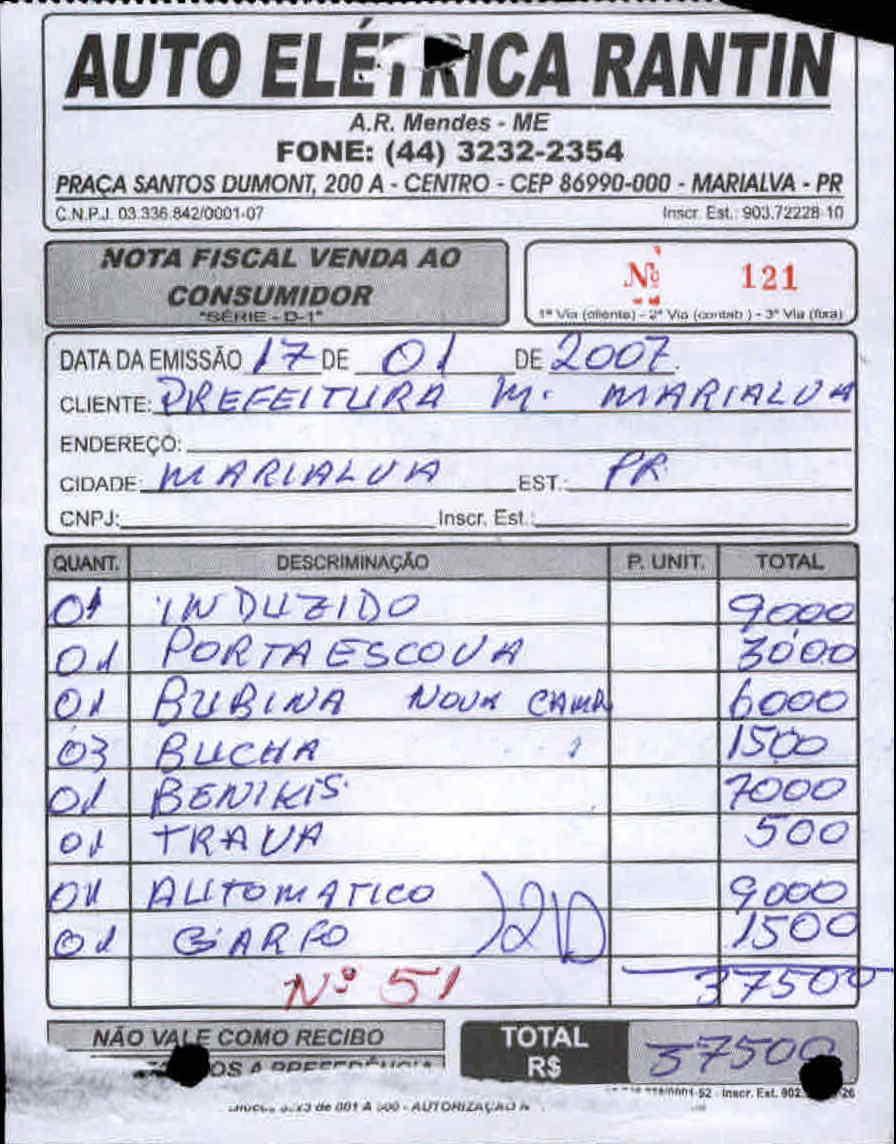 AUTO ELÉTRICA RANTIN
A.R. Mendes - ME
FONE: (44) 3232-2354
PRAÇA SANTOS DUMONT, 200 A - CENTRO - CEP 86990-000 - MARIALVA - PR
C.N.P.J. 03.336.842/0001-07 Inscr. Est.: 903.72228-10
NOTA FISCAL VENDA AO
CONSUMIDOR
"SÉRIE - D-1"
Nº 121
1ª Via (cliente) - 2ª Via (contab.) - 3ª Via (fixa)
DATA DA EMISSÃO 17 DE 01 DE 2007.
CLIENTE: PREFEITURA M. MARIALVA
ENDEREÇO:
CIDADE: MARIALVA EST.: PR
CNPJ: Inscr. Est.:
QUANT. DESCRIMINAÇÃO P. UNIT. TOTAL
01 INDUZIDO 9000
01 PORTA ESCOVA 3000
01 BUBINA NOVA CAMPA 6000
03 BUCHA 1500
01 BENIKIS 7000
01 TRAVA 500
01 AUTOMATICO 9000
01 GARFO 1500
Nº 51 37500
NÃO VALE COMO RECIBO
TOTAL
R$ 37500
OS A PREFERÊNCIA
/0001-52 - Inscr. Est. 902
de 001 A 500 - AUTORIZAÇÃO